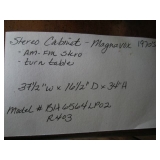 Stereo Cabinet - Magnavox 1970's
- AM-FM Stereo
- turn tables
37½"W x 16½"D x 34"H
Model # BH6564LP02
R403